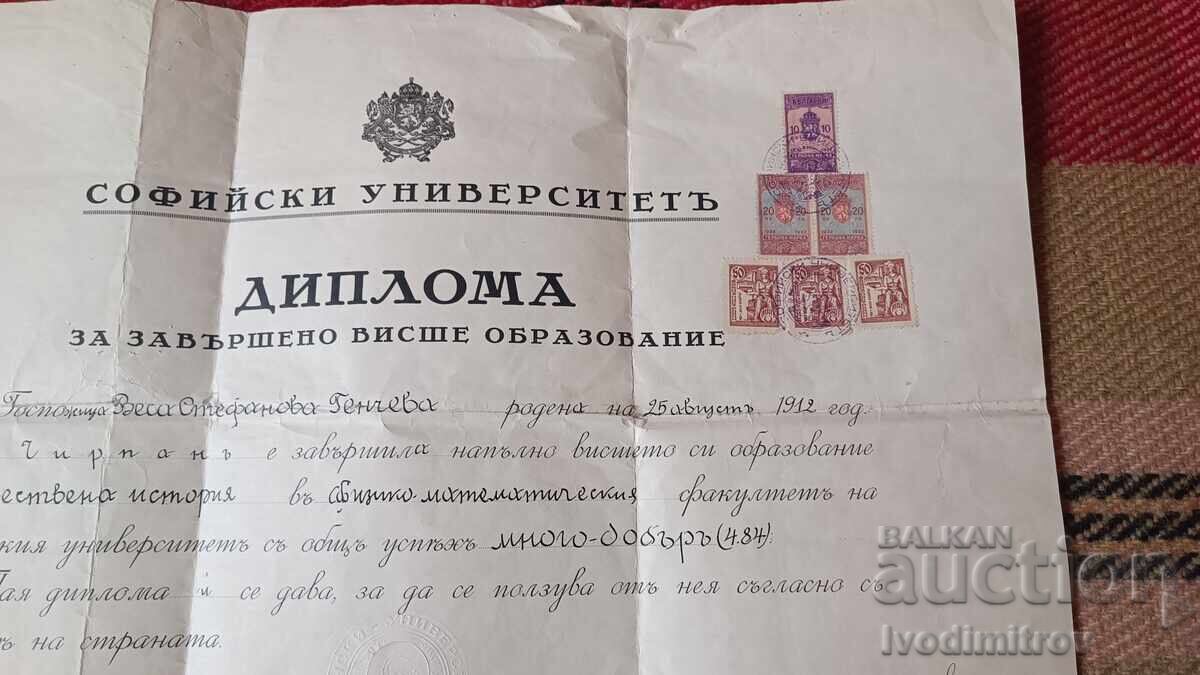 СОФИЙСКИ УНИВЕРСИТЕТЪ
ДИПЛОМА
ЗА ЗАВЪРШЕНО ВИСШЕ ОБРАЗОВАНИЕ
Госпожица Веса Стефанова Генчева родена на 25 августъ 1912 год.
Чирпанъ е завършила напълно висшето си образование
ествена история въ физико-математическия факултетъ на
кия университетъ съ общъ успѣхъ много-добъръ (4.84);
Тая диплома ѝ се дава, за да се ползува отъ нея съгласно съ
ъ на страната.
БЪЛГАРИЯ
10 10
20 20 20 20
50 50 50
BALKAN
auction
Ivodimitrov